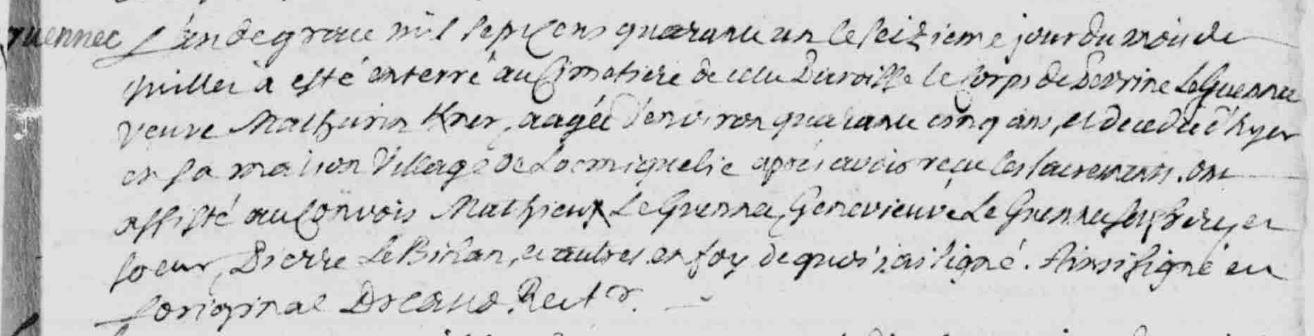 guennec L'an de grace mil sept cens quarante un le seizieme jour du mois de
juillet a esté enterré au Cimetiere de cette Paroisse le Corps de Perrine Le Guennec
veuve Mathurin Kner, aagée d'environ quarante cinq ans, et decedée d'hyer
en sa maison Village de Locmiquelic après avoir reçu les sacremens. ont
assisté au Convois Mathieux Le Guennec, Genevieuve Le Guennec ses frere, et
soeur, Pierre Le Bihan, et autres. en foy de quoi j'ai signé. Ainsi signé en
l'original Dreano. Rect^r.